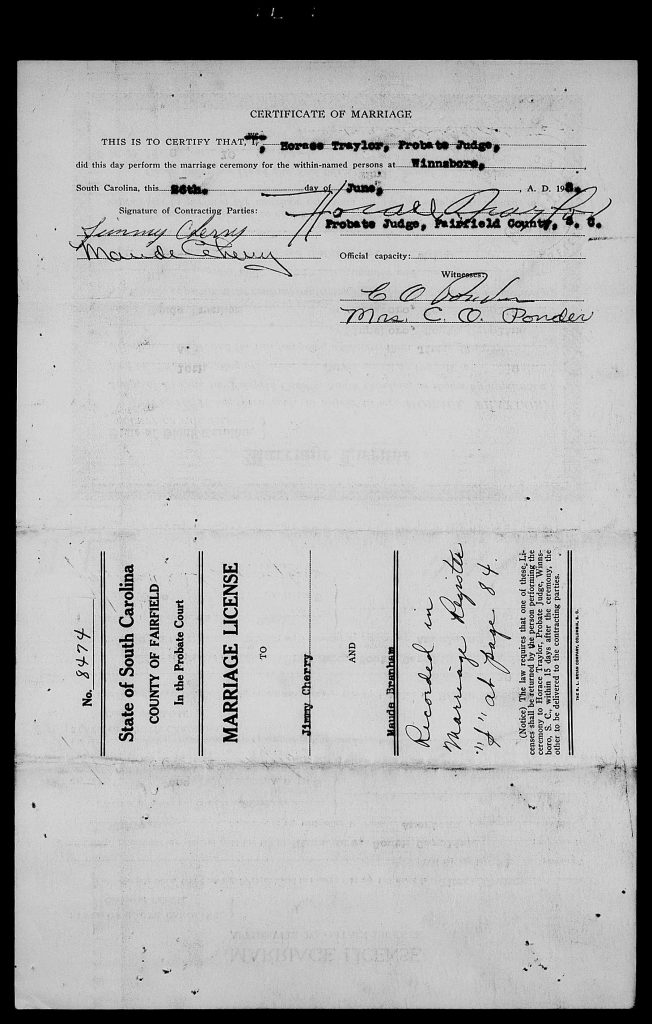 CERTIFICATE OF MARRIAGE
THIS IS TO CERTIFY THAT, I, Horace Traylor, Probate Judge,
did this day perform the marriage ceremony for the within-named persons at Winnsboro,
South Carolina, this 26th. day of June, , A. D. 194
Signature of Contracting Parties: Horace Traylor
Jimmy Cherry Probate Judge, Fairfield County, S. C.
Maude Cherry Official capacity:
Witnesses:
C O Ponder
Mrs. C. O. Ponder
No. 8474
State of South Carolina
COUNTY OF FAIRFIELD
In the Probate Court
MARRIAGE LICENSE
TO
Jimmy Cherry
AND
Maude Branham
Recorded in
Marriage Register
at page 84.
(Notice) The law requires that one of these Li-
censes shall be returned by the person performing the
ceremony to Horace Traylor, Probate Judge, Winns-
boro, S. C., within 15 days after the ceremony, the
other to be delivered to the contracting parties.
THE R. L. BRYAN COMPANY, COLUMBIA, S. C.